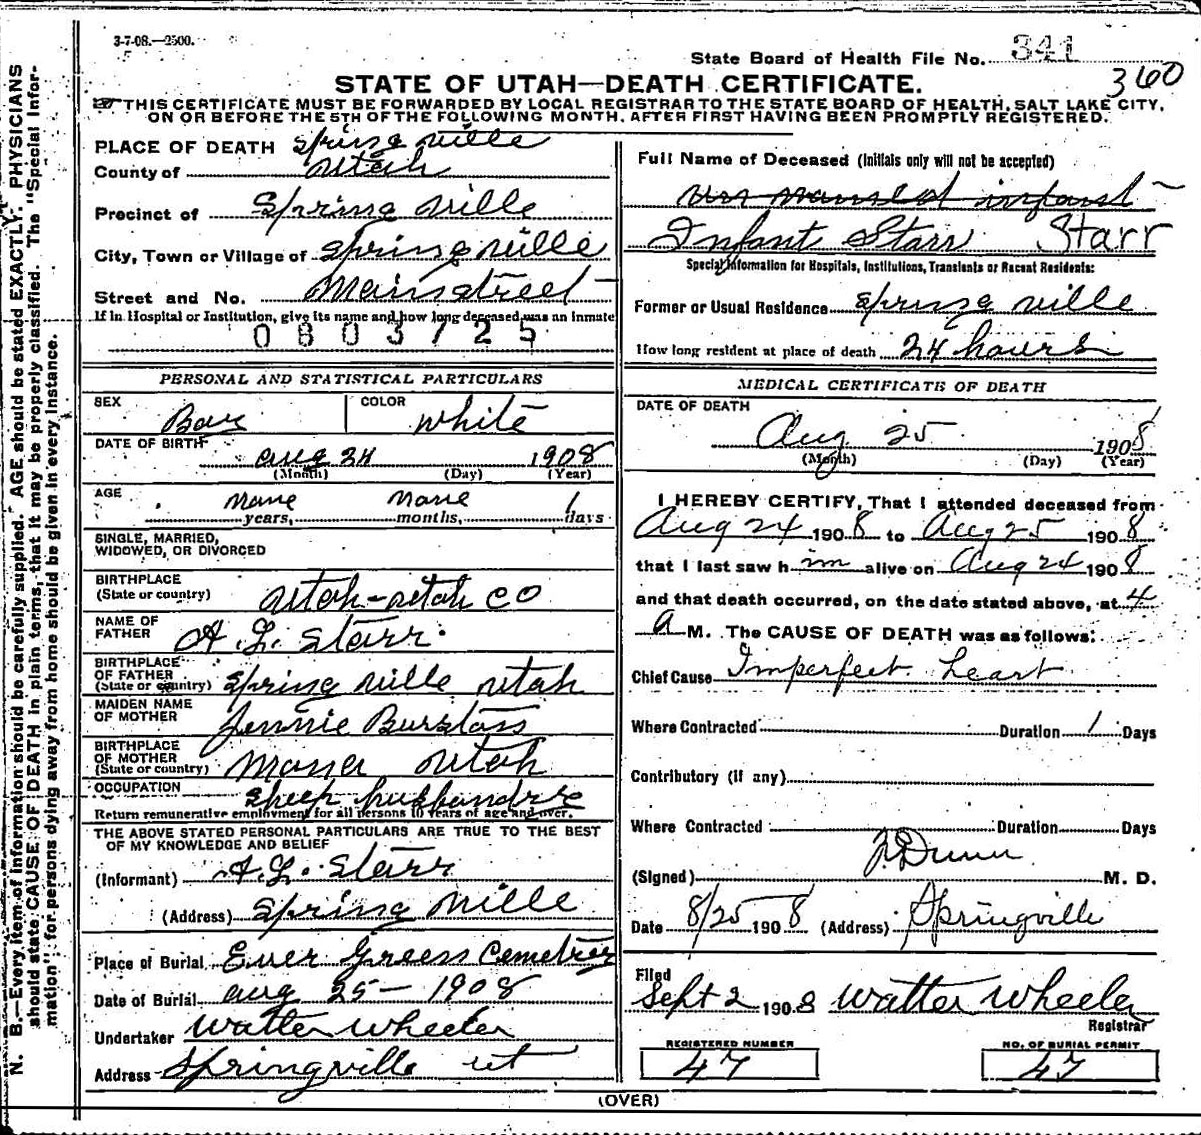 3-7-08.—2500.
State Board of Health File No. 341
360
STATE OF UTAH—DEATH CERTIFICATE.
THIS CERTIFICATE MUST BE FORWARDED BY LOCAL REGISTRAR TO THE STATE BOARD OF HEALTH, SALT LAKE CITY,
ON OR BEFORE THE 5TH OF THE FOLLOWING MONTH, AFTER FIRST HAVING BEEN PROMPTLY REGISTERED.
N. B.—Every item of information should be carefully supplied. AGE should be stated EXACTLY. PHYSICIANS
should state CAUSE OF DEATH in plain terms, that it may be properly classified. The "Special Infor-
mation" for persons dying away from home should be given in every instance.
PLACE OF DEATH Springville
County of Utah
Precinct of Springville
City, Town or Village of Springville
Street and No. Mainstreet
If in Hospital or Institution, give its name and how long deceased was an inmate
0803725
PERSONAL AND STATISTICAL PARTICULARS
SEX Boy COLOR White
DATE OF BIRTH Aug 24 1908
(Month) (Day) (Year)
AGE None years, None months, 1 days
SINGLE, MARRIED,
WIDOWED, OR DIVORCED
BIRTHPLACE
(State or country) Utah-Utah Co
NAME OF
FATHER A. L. Starr
BIRTHPLACE
OF FATHER
(State or country) Springville Utah
MAIDEN NAME
OF MOTHER Jennie
BIRTHPLACE
OF MOTHER
(State or country) Utah
OCCUPATION Sheep husbandry
Return remunerative employment for all persons 10 years of age and over.
THE ABOVE STATED PERSONAL PARTICULARS ARE TRUE TO THE BEST
OF MY KNOWLEDGE AND BELIEF
(Informant) A. L. Starr
(Address) Springville
Place of Burial Ever Green Cemetery
Date of Burial Aug 25 - 1908
Undertaker Walter Wheeler
Address Springville Ut
Full Name of Deceased (Initials only will not be accepted)
infant
Infant Starr Starr
Special Information for Hospitals, Institutions, Transients or Recent Residents:
Former or Usual Residence Springville
How long resident at place of death 24 hours
MEDICAL CERTIFICATE OF DEATH
DATE OF DEATH
Aug 25 1908
(Month) (Day) (Year)
I HEREBY CERTIFY, That I attended deceased from
Aug 24 1908 to Aug 25 1908
that I last saw him alive on Aug 24 1908
and that death occurred, on the date stated above, at 4
A M. The CAUSE OF DEATH was as follows:
Chief Cause Imperfect Heart
Where Contracted Duration 1 Days
Contributory (if any)
Where Contracted Duration Days
(Signed) F Dunn M. D.
Date 8/25 1908 (Address) Springville
Filed
Sept 2 1908 Walter Wheeler
Registrar
REGISTERED NUMBER NO. OF BURIAL PERMIT
47 47
(OVER)